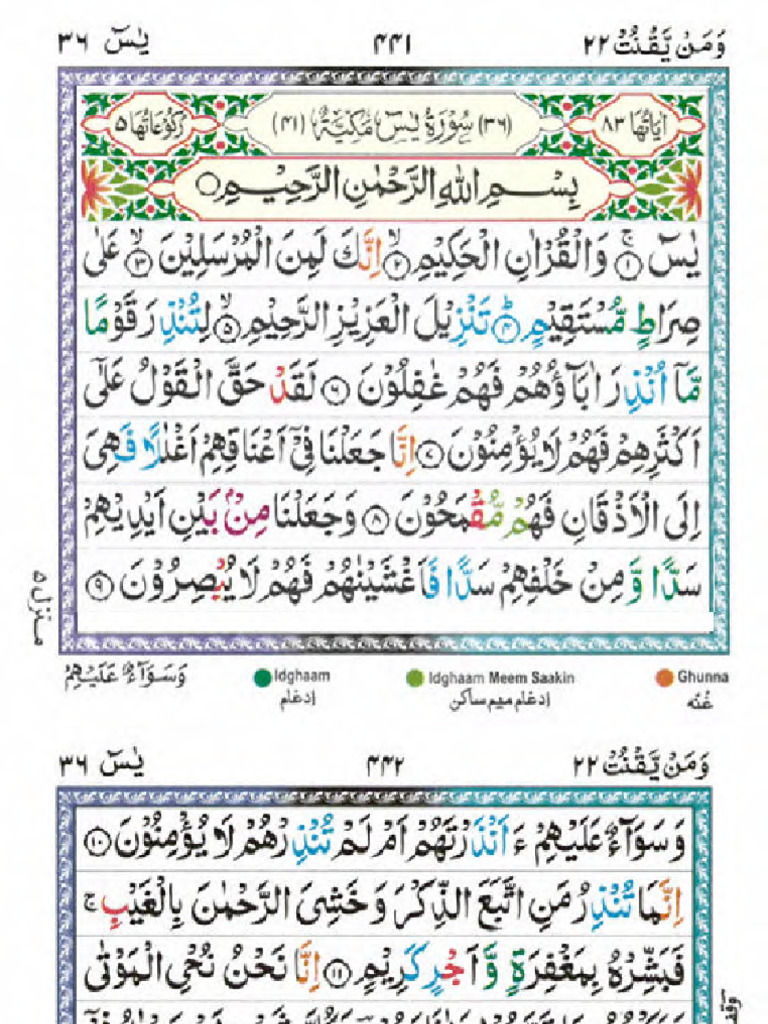 وَمَنْ يَّقْنُتْ ٢٢ ٤٤١ يٰسٓ ٣٦
اٰيَاتُهَا ٨٣ (٣٦) سُوْرَةُ يٰسٓ مَكِّيَّةٌ (٤١) رُكُوْعَاتُهَا ٥
بِسْمِ اللهِ الرَّحْمٰنِ الرَّحِيْمِ
يٰسٓ ۚ ﴿١﴾ وَالْقُرْاٰنِ الْحَكِيْمِ ۙ ﴿٢﴾ اِنَّكَ لَمِنَ الْمُرْسَلِيْنَ ۙ ﴿٣﴾ عَلٰى
صِرَاطٍ مُّسْتَقِيْمٍ ؕ ﴿٤﴾ تَنْزِيْلَ الْعَزِيْزِ الرَّحِيْمِ ۙ ﴿٥﴾ لِتُنْذِرَ قَوْمًا
مَّاۤ اُنْذِرَ اٰبَآؤُهُمْ فَهُمْ غٰفِلُوْنَ ﴿٦﴾ لَقَدْ حَقَّ الْقَوْلُ عَلٰۤى
اَكْثَرِهِمْ فَهُمْ لَا يُؤْمِنُوْنَ ﴿٧﴾ اِنَّا جَعَلْنَا فِىْۤ اَعْنَاقِهِمْ اَغْلٰلًا فَهِىَ
اِلَى الْاَذْقَانِ فَهُمْ مُّقْمَحُوْنَ ﴿٨﴾ وَجَعَلْنَا مِنْۢ بَيْنِ اَيْدِيْهِمْ
سَدًّا وَّمِنْ خَلْفِهِمْ سَدًّا فَاَغْشَيْنٰهُمْ فَهُمْ لَا يُبْصِرُوْنَ ﴿٩﴾
منزل ٥
وَسَوَآءٌ عَلَيْهِمْ Idghaam Idghaam Meem Saakin Ghunna
ادغام ادغام ميم ساكن غنّه
وَمَنْ يَّقْنُتْ ٢٢ ٤٤٢ يٰسٓ ٣٦
وَسَوَآءٌ عَلَيْهِمْ ءَاَنْذَرْتَهُمْ اَمْ لَمْ تُنْذِرْهُمْ لَا يُؤْمِنُوْنَ ﴿١٠﴾
اِنَّمَا تُنْذِرُ مَنِ اتَّبَعَ الذِّكْرَ وَخَشِىَ الرَّحْمٰنَ بِالْغَيْبِ ۚ
فَبَشِّرْهُ بِمَغْفِرَةٍ وَّاَجْرٍ كَرِيْمٍ ﴿١١﴾ اِنَّا نَحْنُ نُحْىِ الْمَوْتٰى